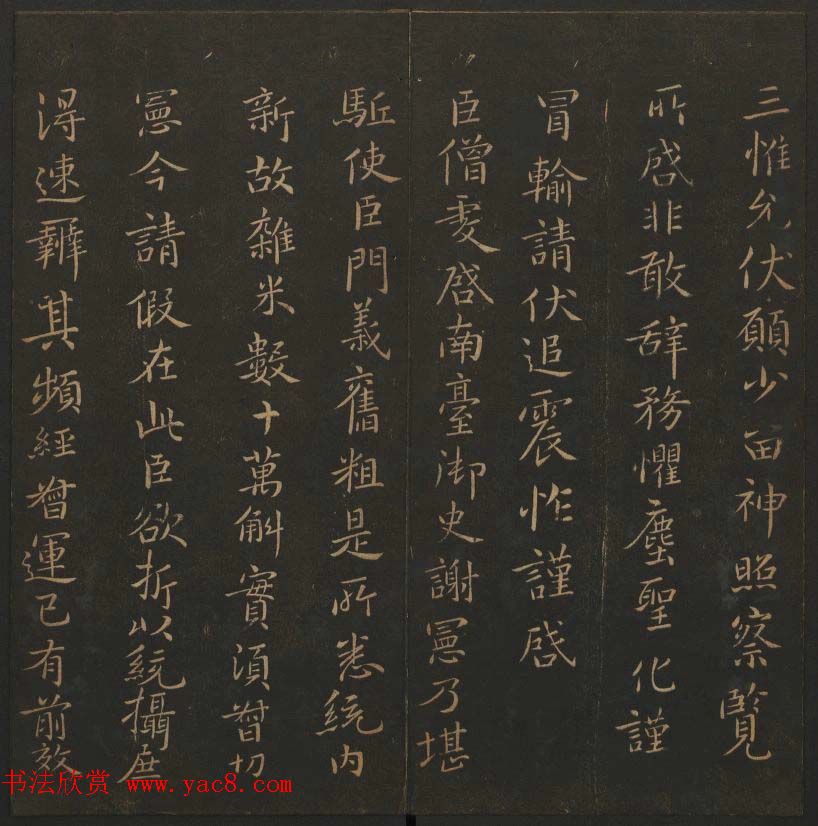 三惟允伏願少留神照察覽
所啓非敢辞務懼塵聖化謹
冒輸請伏追震怍謹啓
臣僧虔啓南臺御史謝憲乃堪
駈使臣門義舊粗是所悉統内
新故雜米數十萬斛實須督切
憲今請假在此臣欲折以統攝庶
得速辦其頻經督運已有前效
书法欣赏 www.yac8.com